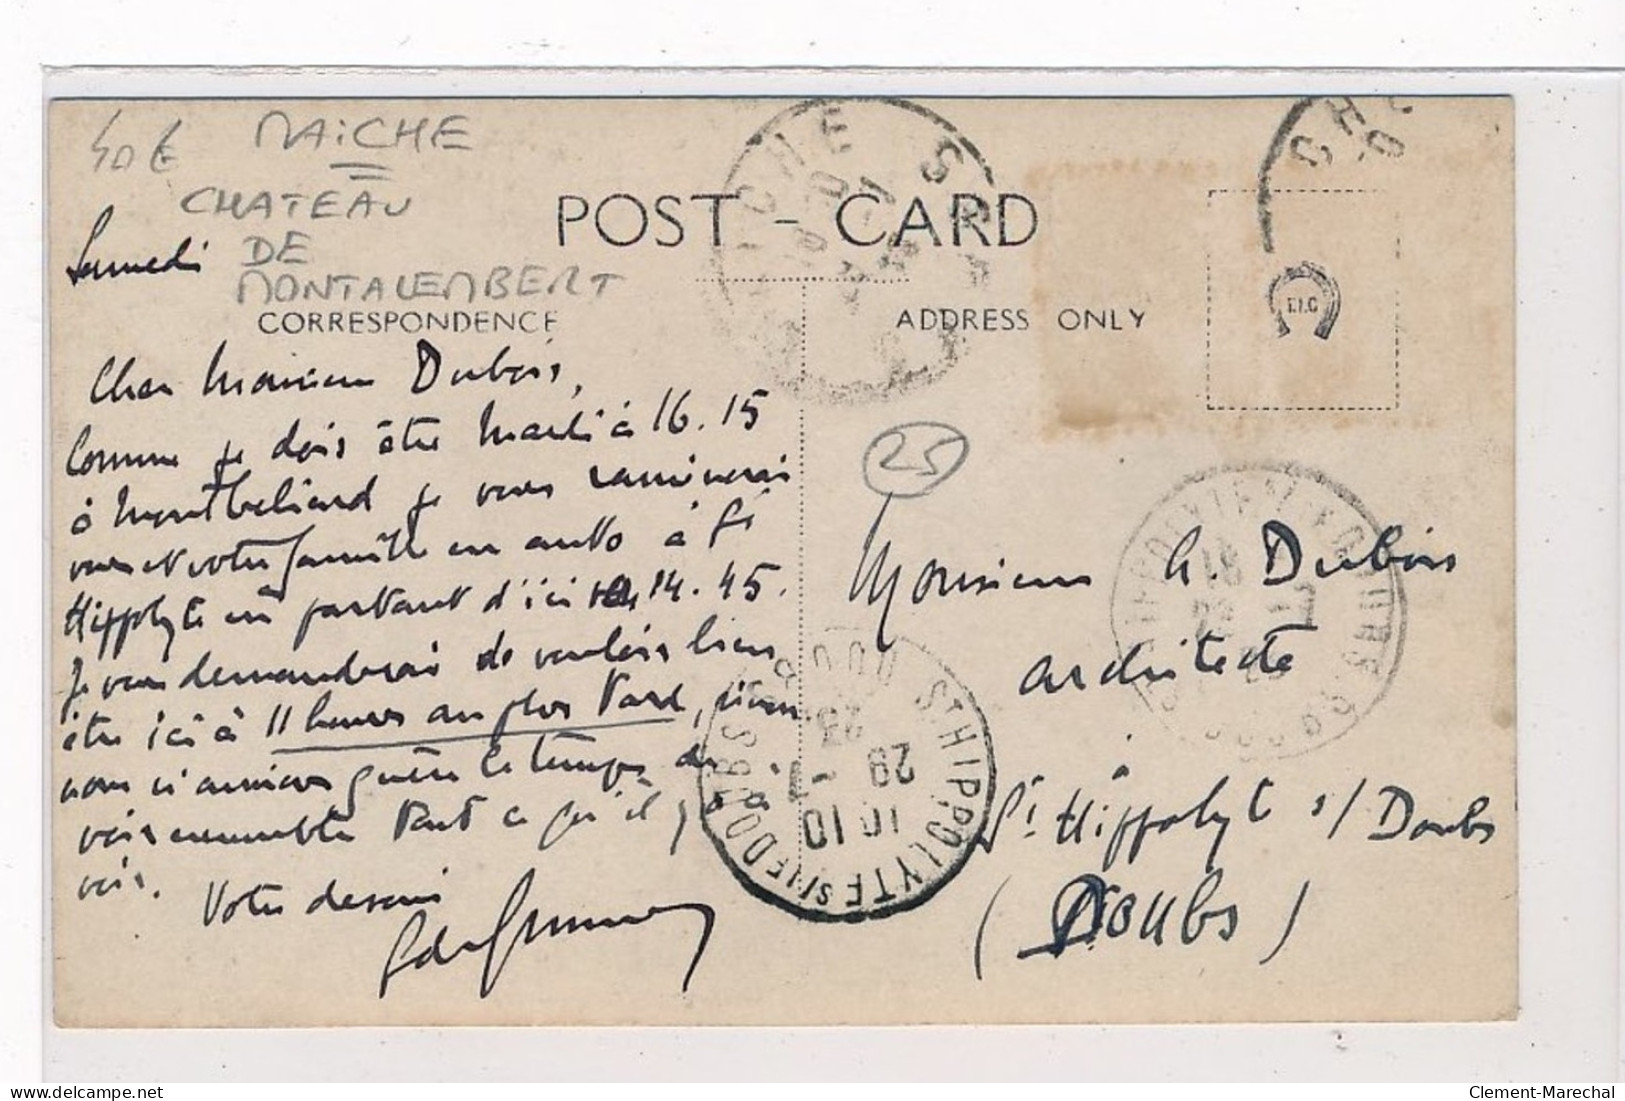 40€ MAICHE
CHATEAU
DE
MONTALEMBERT
POST - CARD
CORRESPONDENCE
ADDRESS ONLY
T.I.C
25
Samedi
Cher Monsieur Dubois,
Comme je dois être Mardi à 16.15
à Montbéliard je vous ramènerai
vous et votre famille en auto à St
Hippolyte en partant d'ici à 14.45.
Je vous demanderai de vouloir bien
être ici à 11 heures au plus tard, sinon
nous n'aurions guère le temps de
voir ensemble tout ce qu'il y a à
voir.
Votre dessin
Monsieur G. Dubois
architecte
à
St Hippolyte s/ Doubs
(Doubs)
ST HIPPOLYTE S/ LE DOUBS
DOUBS
10 10
28 -7
23
Clement-Marechal
www.delcampe.net